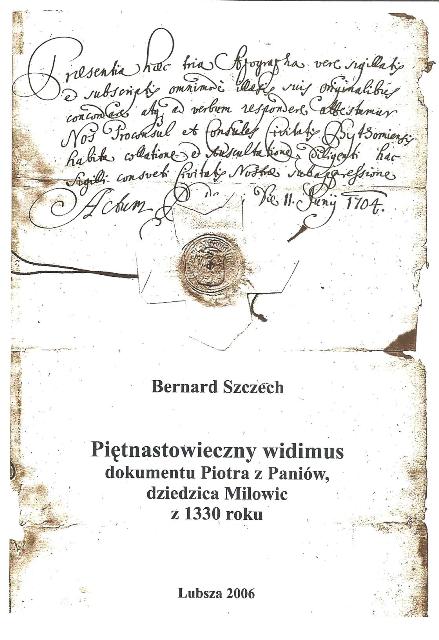 Præsentia hæc tria Apographa vere sigillata
et subscripta omnimode illæsis suis originalibus
concordare atq; ad verbum respondere attestamur
Nos Proconsul et Consules Civitatis Bythomiensis
habita collatione et Auscultatione Diligenti hac
Sigilli consveti Civitatis Nostræ subappressione
Actum Die 11. Juny 1704.
Bernard Szczech
Piętnastowieczny widimus
dokumentu Piotra z Paniów,
dziedzica Milowic
z 1330 roku
Lubsza 2006